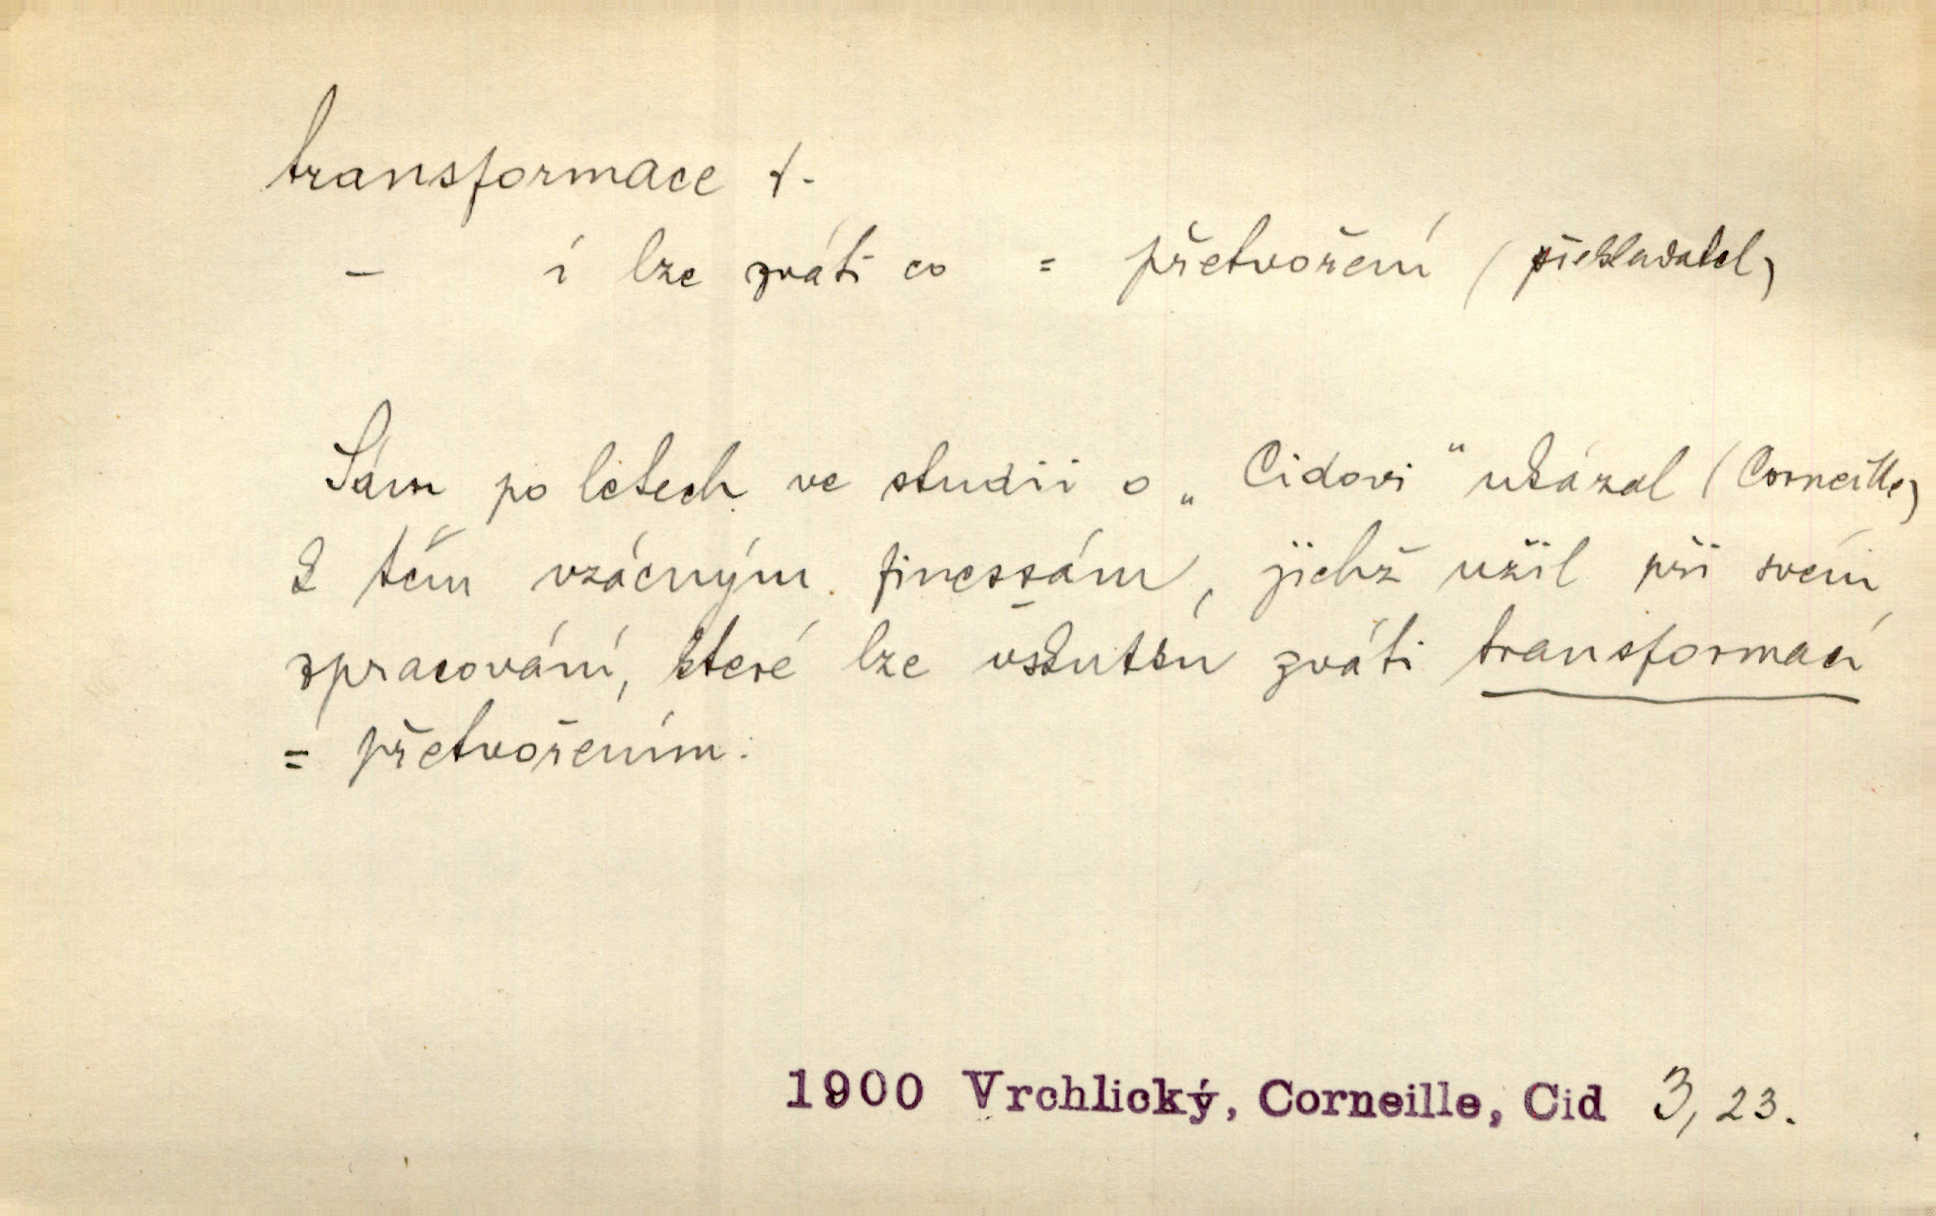 transformace f.
– í lze zváti co = přetvoření (překladatel)
Sám po létech ve studii o „Cidovi“ ukázal (Corneille)
k těm vzácným finessám, jichž užil při svém
zpracování, které lze vskutku zváti transformací
= přetvořením.
1900 Vrchlický, Corneille, Cid 3, 23.